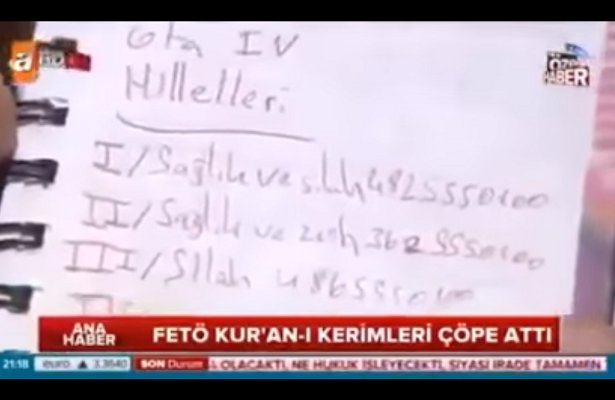 a
ÖZEL
HABER
Gta IV
Hilleleri
I/Sağlık ve silah 4825550100
II/Sağlık ve zırh 3625550100
III/Silah 4865550100
ANA
HABER
FETÖ KUR'AN-I KERİMLERİ ÇÖPE ATTI
21:18 euro ▲ 3.3640 SON Durum OLACAKTI, NE HUKUK İŞLEYECEKTİ, SİYASİ İRADE TAMAMEN